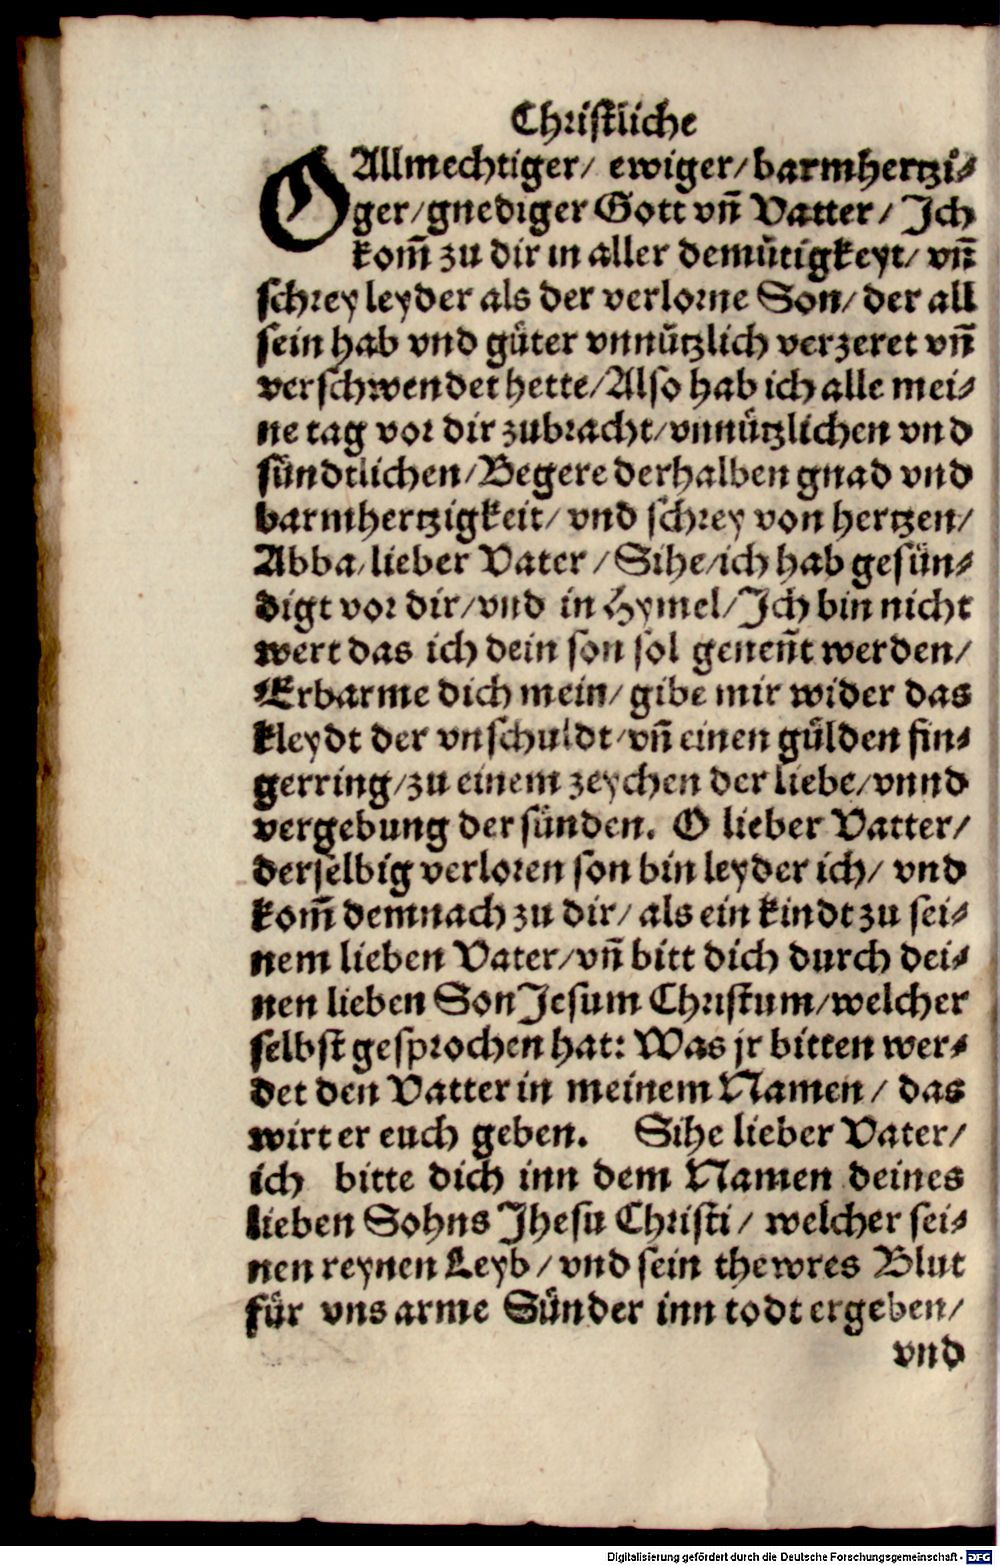 Christliche
O Allmechtiger/ ewiger/ barmhertzi⸗
ger/ gnediger Gott vn̄ Vatter/ Jch
kom̄ zu dir in aller demütigkeyt/ vn̄
schrey leyder als der verlorne Son/ der all
sein hab vnd güter vnnützlich verzeret vn̄
verschwendet hette/ Also hab ich alle mei⸗
ne tag vor dir zubracht/ vnnützlichen vnd
sündtlichen/ Begere derhalben gnad vnd
barmhertzigkeit/ vnd schrey von hertzen/
Abba/ lieber Vater/ Sihe/ ich hab gesün⸗
digt vor dir/ vnd in Hymel/ Jch bin nicht
wert das ich dein son sol genen̄t werden/
Erbarme dich mein/ gibe mir wider das
kleydt der vnschuldt/ vn̄ einen gülden fin⸗
gerring/ zu einem zeychen der liebe/ vnnd
vergebung der sünden. O lieber Vatter/
derselbig verloren son bin leyder ich/ vnd
kom̄ demnach zu dir/ als ein kindt zu sei⸗
nem lieben Vater/ vn̄ bitt dich durch dei⸗
nen lieben Son Jesum Christum/ welcher
selbst gesprochen hat: Was jr bitten wer⸗
det den Vatter in meinem Namen/ das
wirt er euch geben. Sihe lieber Vater/
ich bitte dich inn dem Namen deines
lieben Sohns Jhesu Christi/ welcher sei⸗
nen reynen Leyb/ vnd sein thewres Blut
für vns arme Sünder inn todt ergeben/
vnd
Digitalisierung gefördert durch die Deutsche Forschungsgemeinschaft - DFG